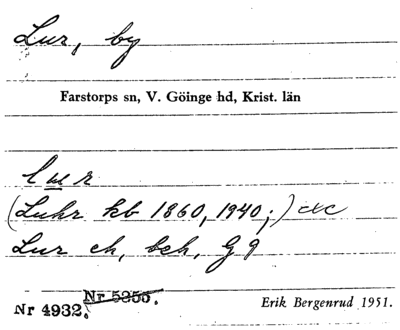 Lur, by
Farstorps sn, V. Göinge hd, Krist. län
lur
(Luhr kb 1860, 1940;) exc
Lur ch, bch, G 9
Nr 5356.
Nr 4932.
Erik Bergenrud 1951.